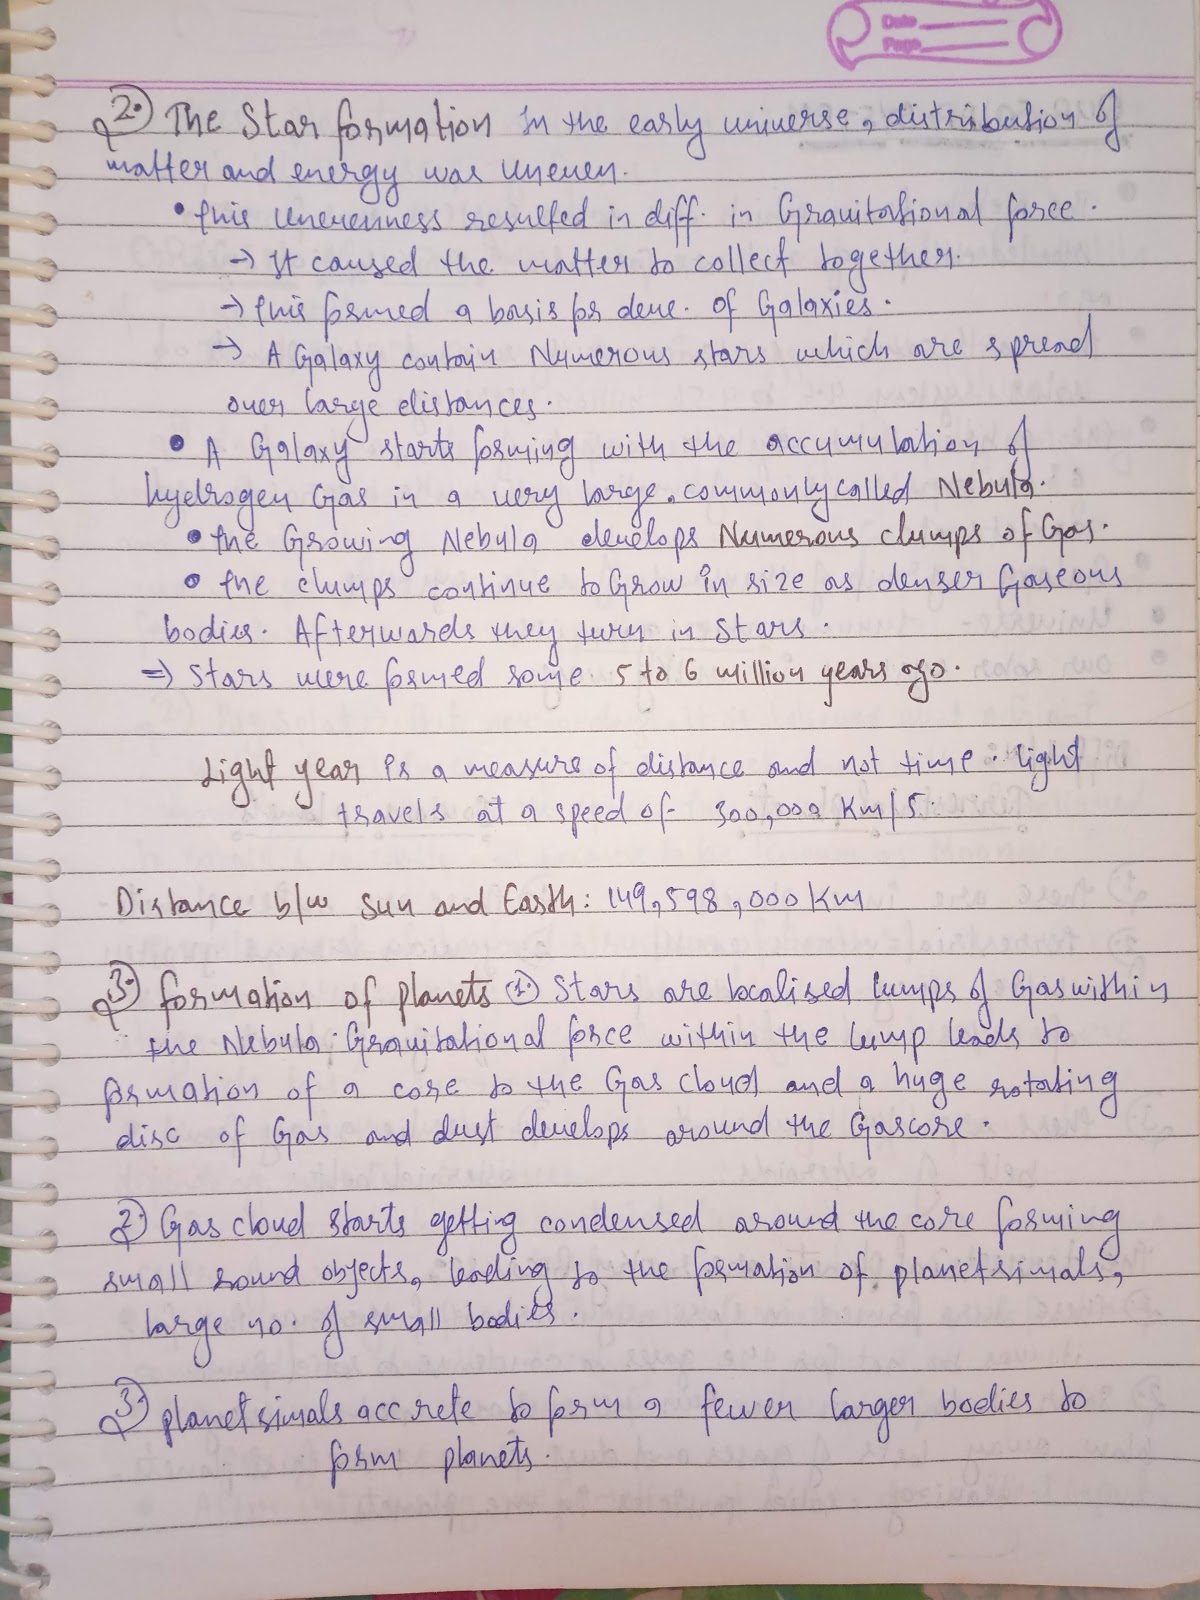 Date
Page
2. The Star formation In the early universe, distribution of
matter and energy was uneven.
• this unevenness resulted in diff. in Gravitational force.
→ It caused the matter to collect together.
→ this formed a basis for deve. of Galaxies.
→ A Galaxy contain Numerous stars which are spread
over large distances.
• A Galaxy starts forming with the accumulation of
hydrogen Gas in a very large, commonly called Nebula.
• the Growing Nebula develops Numerous clumps of Gas.
• the clumps continue to Grow in size as denser Gaseous
bodies. Afterwards they turn in Stars.
⇒ Stars were formed some 5 to 6 million years ago.
Light year is a measure of distance and not time. light
travels at a speed of 300,000 Km/s.
Distance b/w Sun and Earth: 149,598,000 Km
3. formation of planets 1. Stars are localised lumps of Gas within
the Nebula. Gravitational force within the lump leads to
formation of a core to the Gas cloud and a huge rotating
disc of Gas and dust develops around the Gas core.
2) Gas cloud starts getting condensed around the core forming
small round objects, leading to the formation of planetsimals,
large no. of small bodies.
3. planetsimals accrete to form a fewer larger bodies to
form planets.